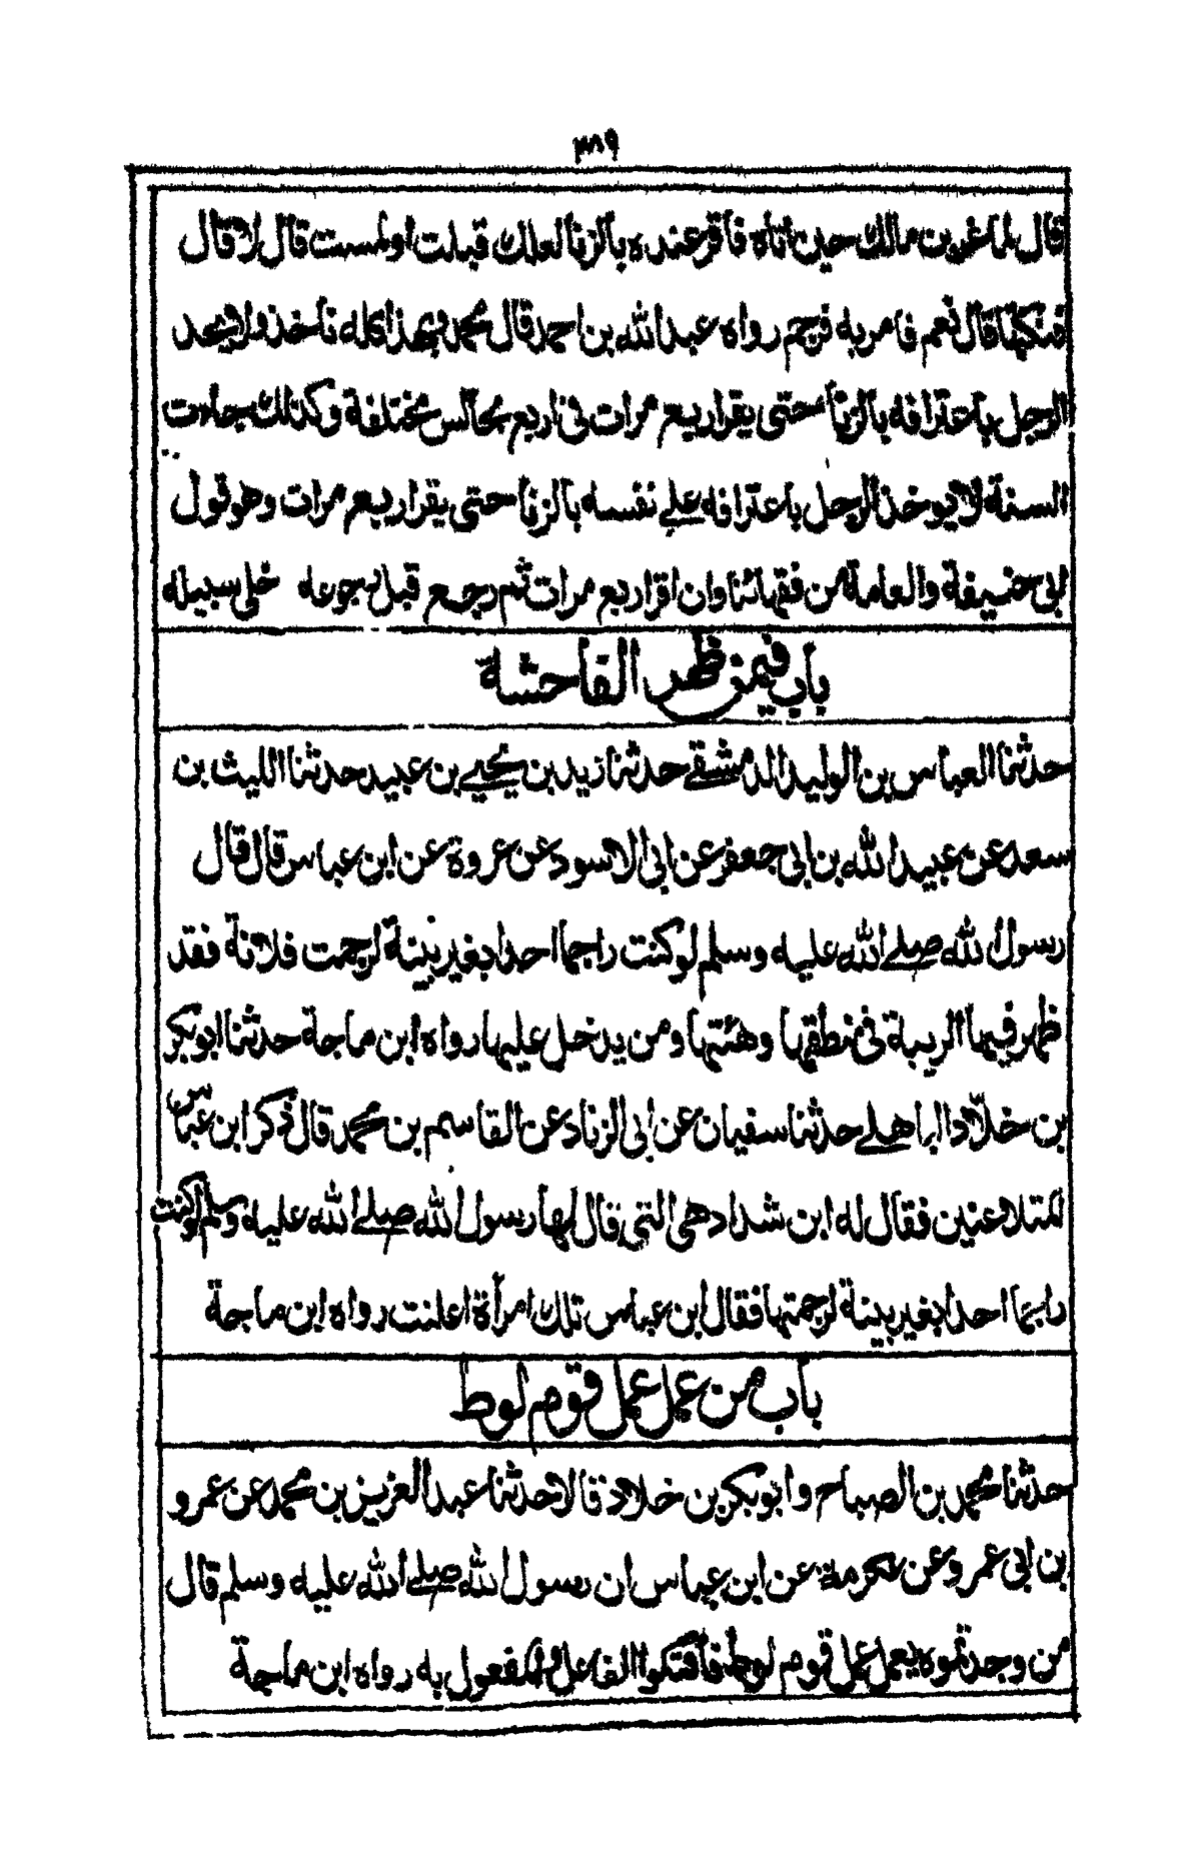 ٣٨٩
قال لماعز بن مالك حين اتاه فاقر عنده بالزنا لعلك قبلت اولمست قال لا قال
فنكتها قال نعم فامر به فرجم رواه عبد الله بن احمد قال محمد وبهذا كله ناخذ ولا يحد
الرجل باعترافه بالزنا حتى يقر اربع مرات فى اربع مجالس مختلفة وكذلك جاءت
السنة لا يوخذ الرجل باعترافه علے نفسه بالزنا حتى يقر اربع مرات وهو قول
ابى حنيفة والعامة من فقهائنا وان اقر اربع مرات ثم رجع قبل رجوعه خلى سبيله
باب فيمن ظهر الفاحشة
حدثنا العباس بن الوليد الدمشقے حدثنا زيد بن يحيے بن عبيد حدثنا الليث بن
سعد عن عبيد الله بن ابى جعفر عن ابى الاسود عن عروة عن ابن عباس قال قال
رسول الله صلے الله عليه وسلم لو كنت راجما احدا بغير بينة لرجمت فلانة فقد
ظهر فيها الريبة فى منطقها وهئتها ومن يدخل عليها رواه ابن ماجة حدثنا ابو بكر
بن خلاد الباهلے حدثنا سفيان عن ابى الزناد عن القاسم بن محمد قال ذكر ابن عباس
المتلاعنين فقال له ابن شداد هى التى قال لها رسول الله صلے الله عليه وسلم لو كنت
راجما احدا بغير بينة لرجمتها فقال ابن عباس تلك امرأة اعلنت رواه ابن ماجة
باب من عمل عمل قوم لوط
حدثنا محمد بن الصباح وابو بكر بن خلاد قالا حدثنا عبد العزيز بن محمد عن عمرو
بن ابى عمرو عن عكرمة عن ابن عباس ان رسول الله صلے الله عليه وسلم قال
من وجدتموه يعمل عمل قوم لوط فاقتلوا الفاعل والمفعول به رواه ابن ماجة